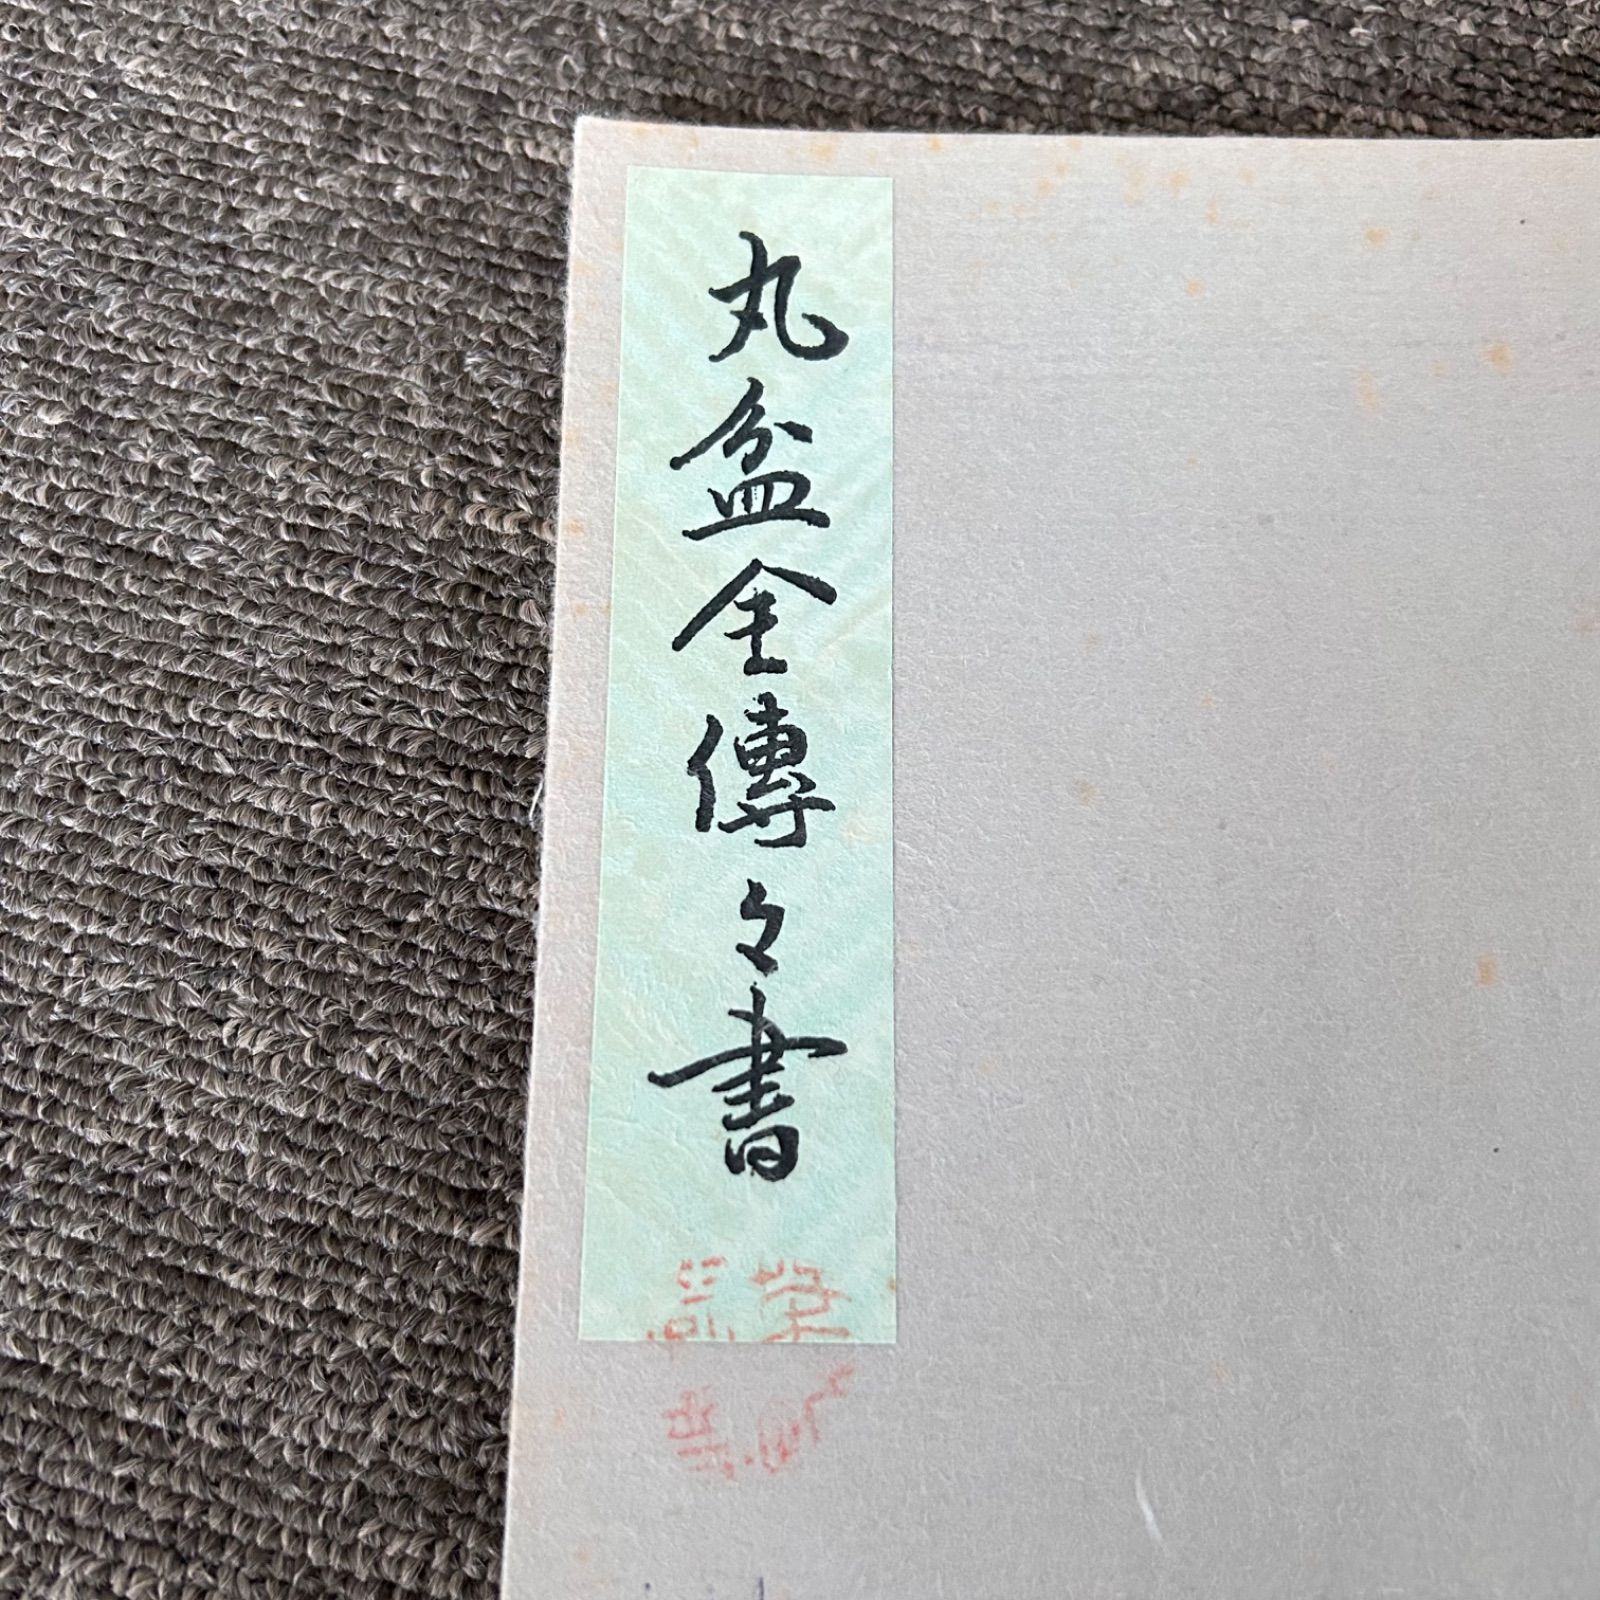 丸盆全傳々書